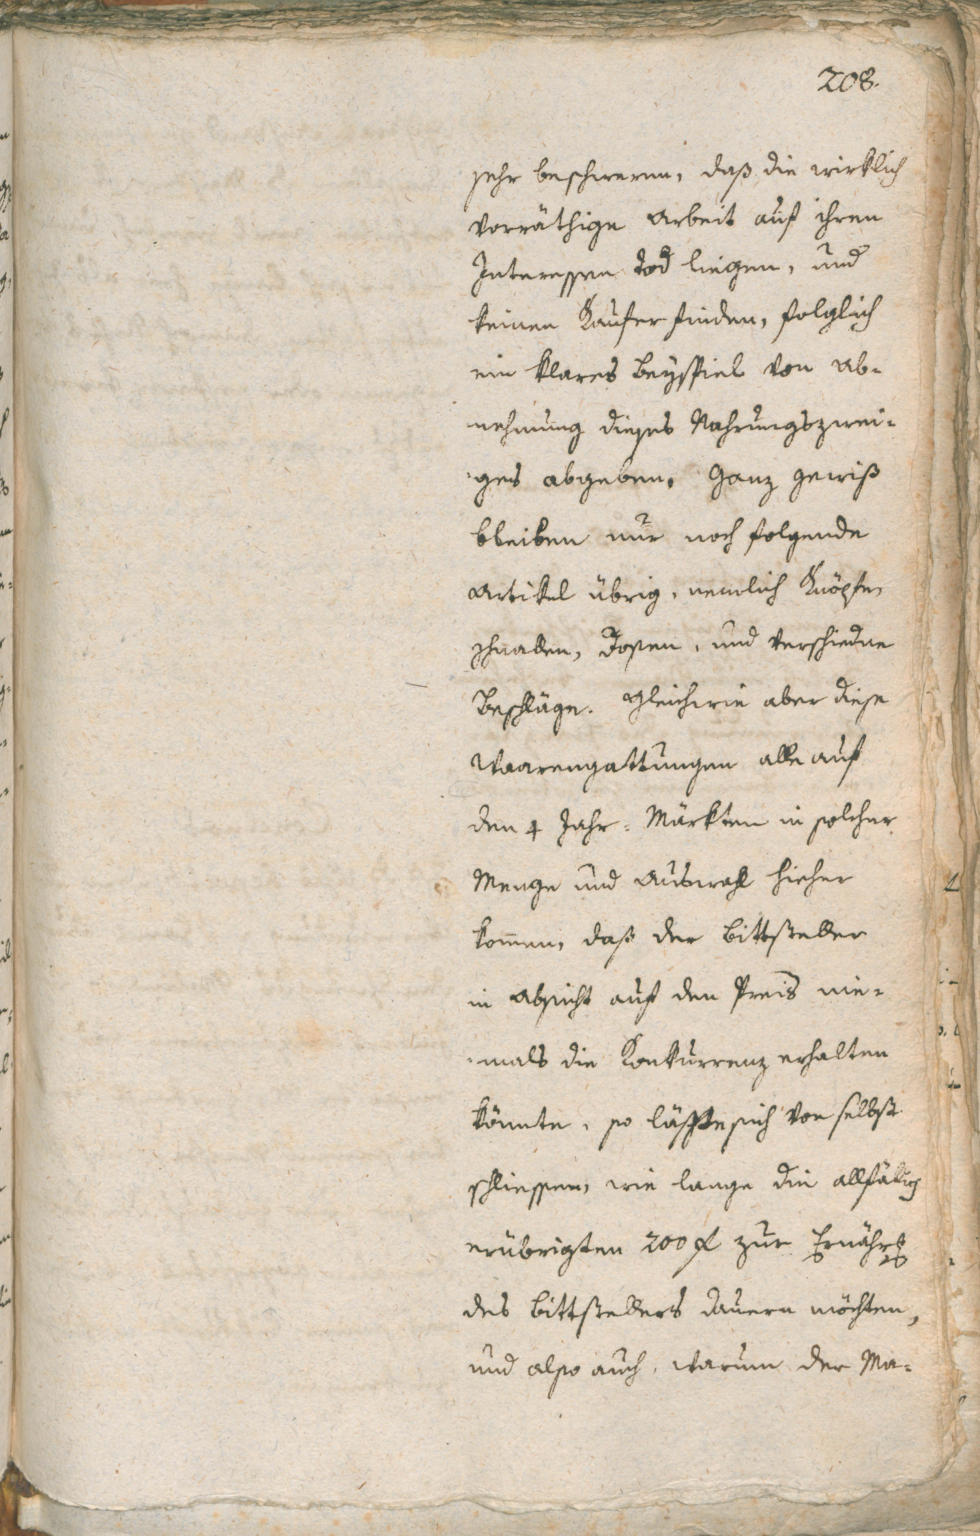 208.
sehr beschweren, daß die wirklich
vorräthige Arbeit auf ihren
Interessen tod liegen, und
keinen Kaufer finden, folglich
ein klares Beyspiel von Ab-
nehmung dieses Nahrungszwei-
-ges abgeben. Ganz gewiß
bleiben nur noch folgende
Artikel übrig, nemlich Knöpfe,
schnallen, Dosen, und verschiedne
Beschläge. Gleichwie aber diese
Waarengattungen alle auf
den 4 Jahr-Märkten in solcher
Menge und Auswahl hieher
kommen, daß der Bittsteller
in Absicht auf den Preis nie-
-mals die Konkurrenz erhalten
könnte, so läßt sich von selbst
schliessen, wie lange die allfällig
erübrigten 200 f zur Ernährg
des Bittstellers dauern möchten,
und also auch, warum der Ma-